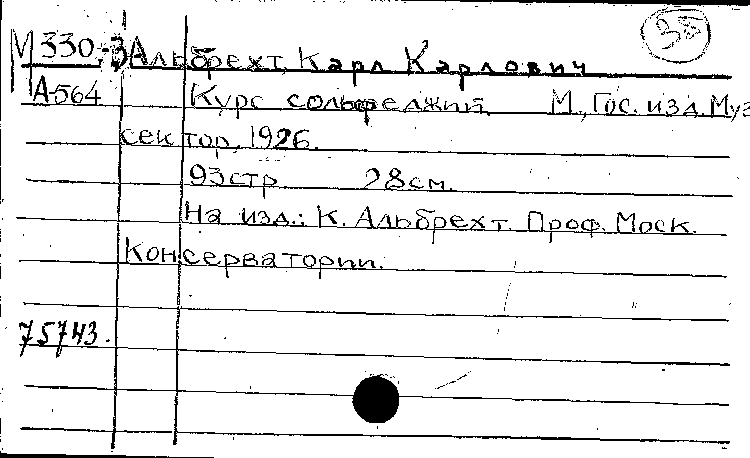 38
М 330,-3 Альбрехт, Карл Карлович
А-564 Курс сольфеджий. М., Гос. изд. Муз
сектор, 1926.
93 стр 28 см.
На изд.: К. Альбрехт. Проф. Моск.
Консерватории.
75743.